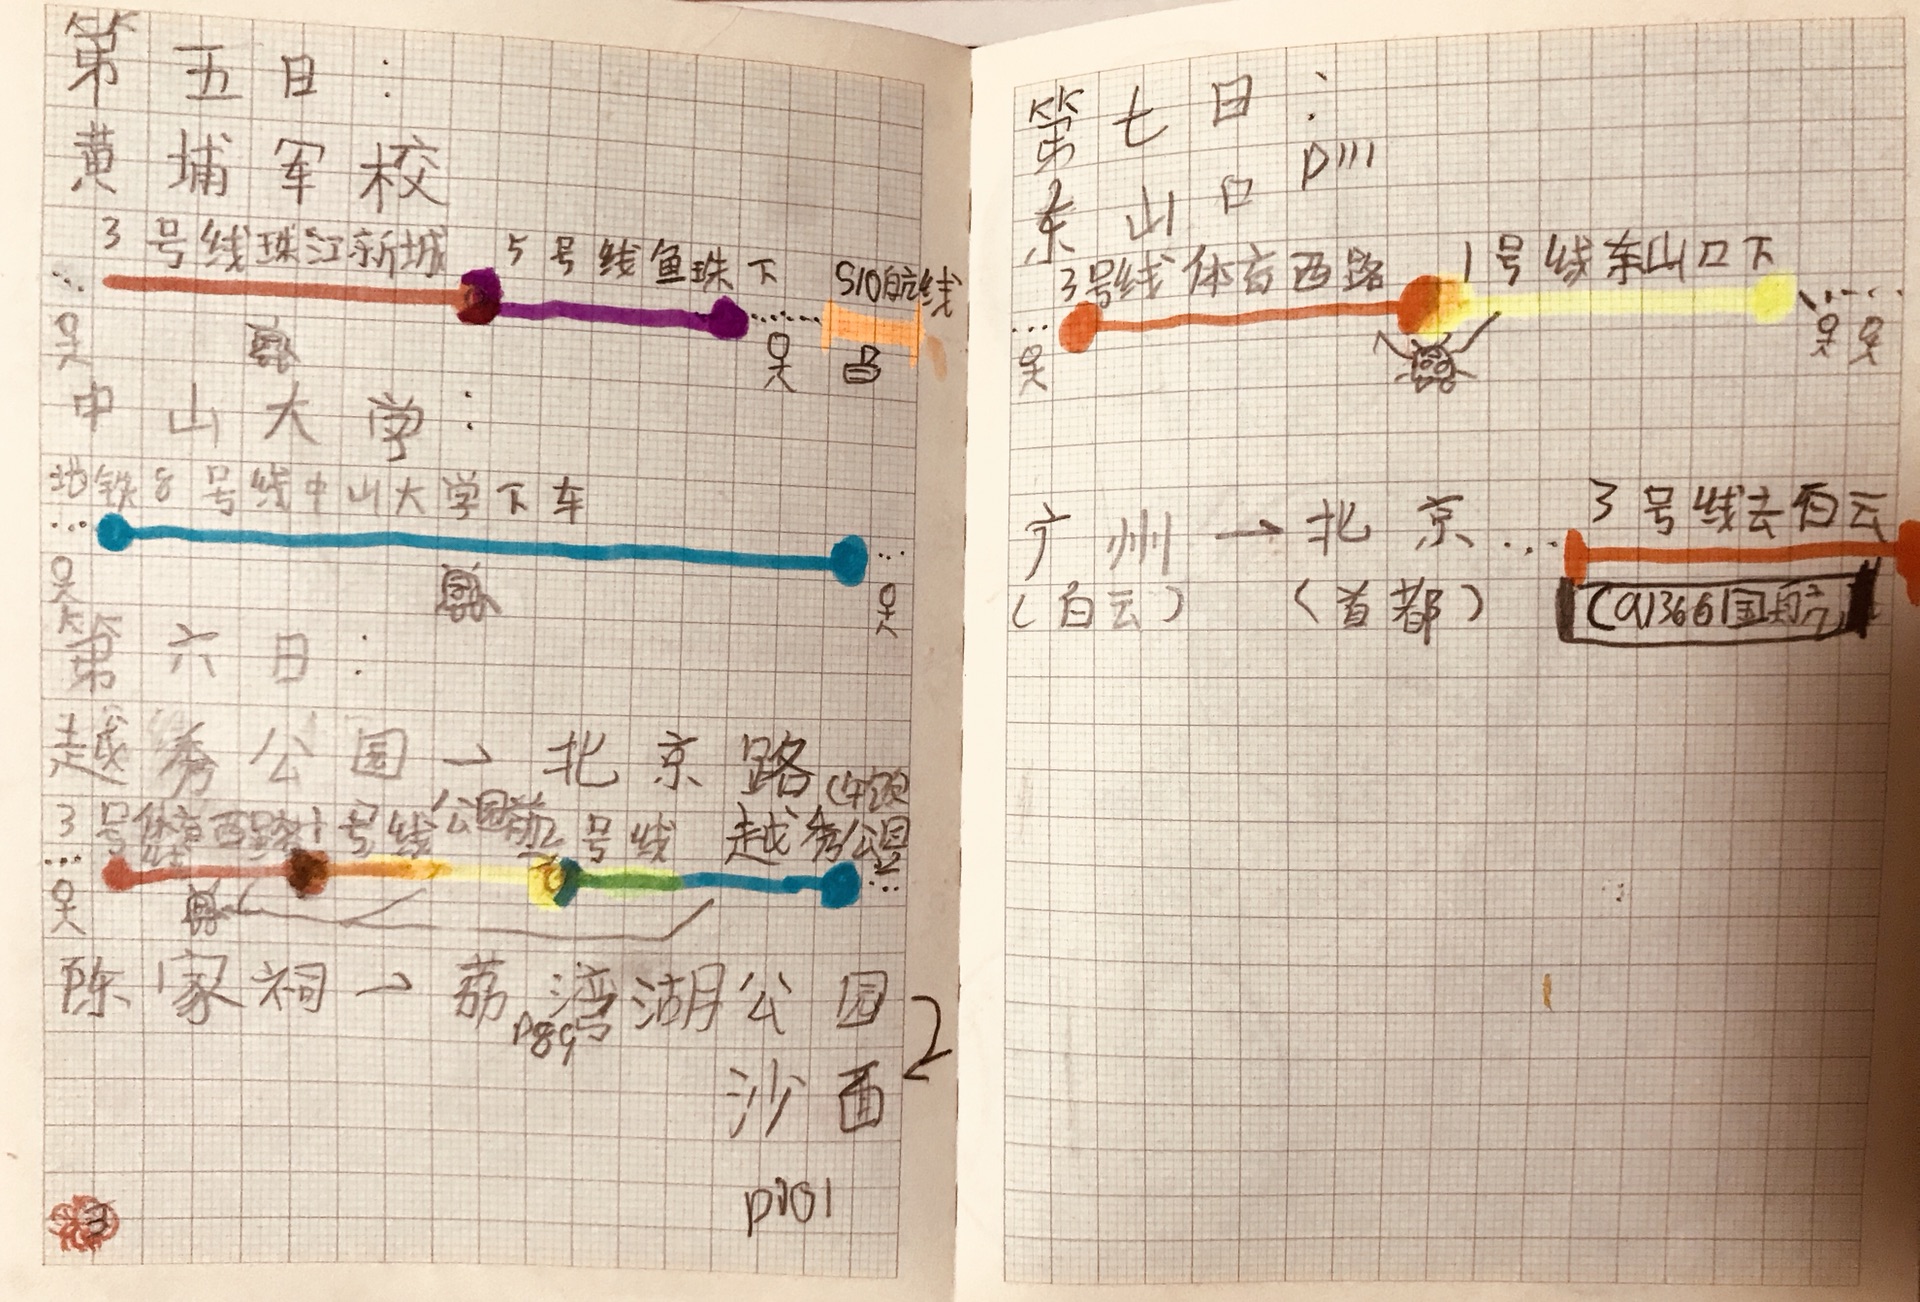 第五日：
黄埔军校
3号线珠江新城 5号线鱼珠下 S10航线
中山大学：
地铁8号线中山大学下车
第六日：
越秀公园→北京路
3号体育西路 1号线 公园前 2号线 越秀公园
陈家祠→荔湾湖公园 2
P89
沙面
P101
3
第七日：
东山口 P111
3号线体育西路 1号线东山口下
广州→北京 ... 3号线去白云
（白云） （首都） CA1366国航